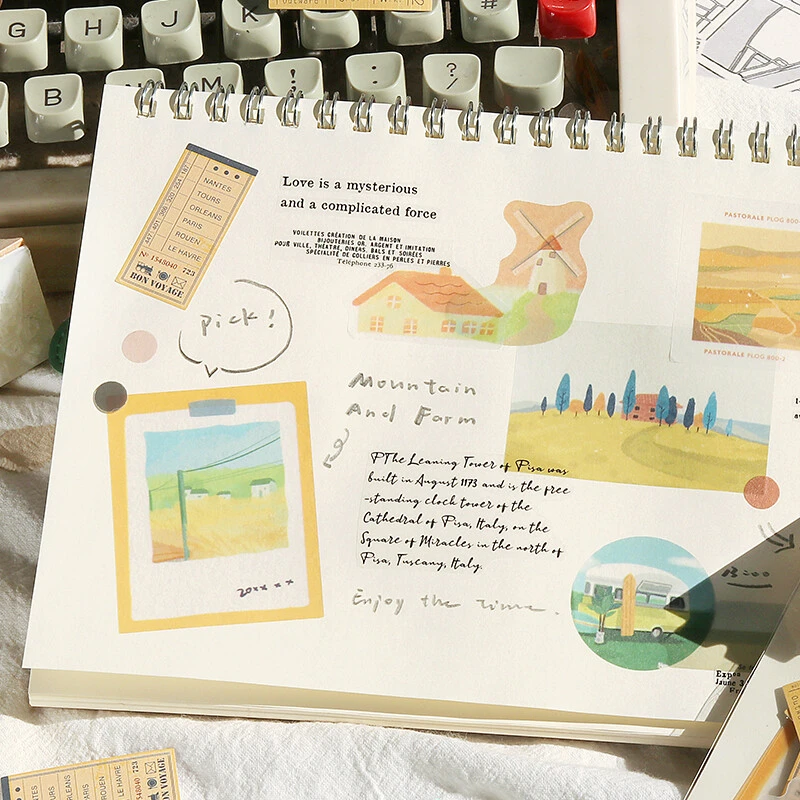 G H J K #
B N M ! : ?
Love is a mysterious
and a complicated force
VOILETTES CRÉATION DE LA MAISON
BIJOUTERIES OR, ARGENT ET IMITATION
POUR VILLE, THÉATRE, DINERS, BALS ET SOIRÉES
SPÉCIALITÉ DE COLLIERS EN PERLES ET PIERRES
Téléphone 233-76
NANTES
TOURS
ORLEANS
PARIS
ROUEN
LE HAVRE
447 401 368 320 254 187
Nº 1548040 723
BON VOYAGE
PASTORALE FLOG 800-2
PASTORALE FLOG 800-2
pick!
Mountain
And Farm
PThe Leaning Tower of Pisa was
built in August 1173 and is the free
-standing clock tower of the
Cathedral of Pisa, Italy, on the
Square of Miracles in the north of
Pisa, Tuscany, Italy.
20xx x x
Enjoy the time.
LE HAVRE
ROUEN
PARIS
ORLEANS
TOURS
1548040 723
BON VOYAGE